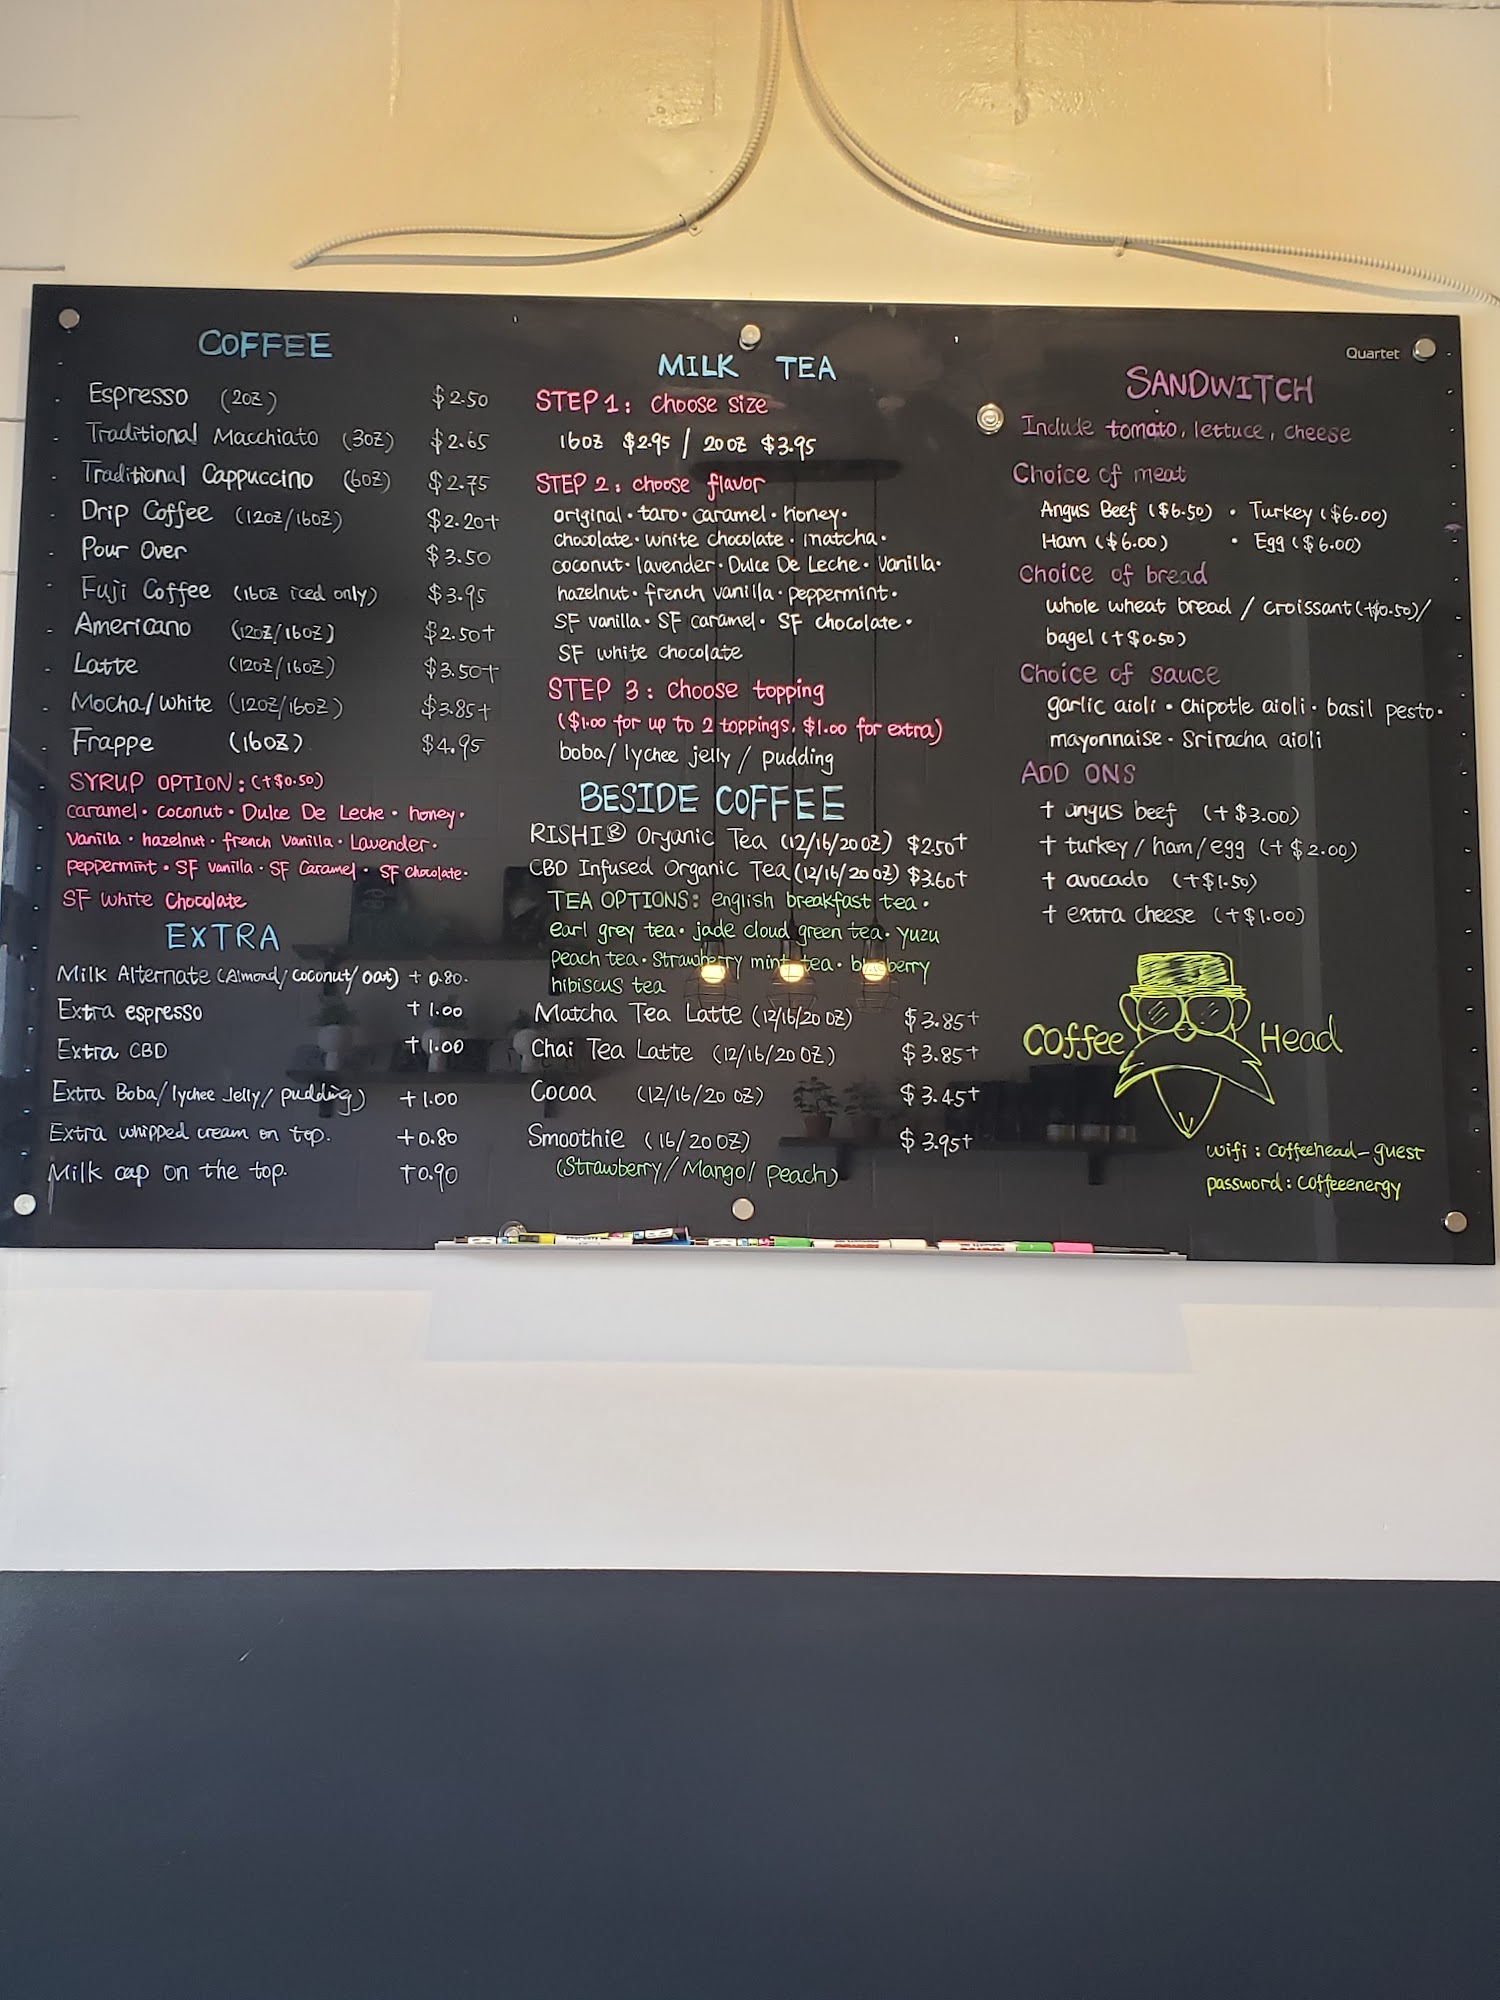 Quartet
COFFEE
Espresso (2oz) $2.50
Traditional Macchiato (3oz) $2.65
Traditional Cappuccino (6oz) $2.75
Drip Coffee (12oz/16oz) $2.20+
Pour Over $3.50
Fuji Coffee (16oz iced only) $3.95
Americano (12oz/16oz) $2.50+
Latte (12oz/16oz) $3.50+
Mocha/White (12oz/16oz) $3.85+
Frappe (16oz) $4.95
SYRUP OPTION: (+$0.50)
caramel • coconut • Dulce De Leche • honey •
Vanilla • hazelnut • french Vanilla • Lavender •
peppermint • SF vanilla • SF Caramel • SF chocolate •
SF white Chocolate
EXTRA
Milk Alternate (Almond/coconut/oat) + 0.80.
Extra espresso + 1.00
Extra CBD + 1.00
Extra Boba/lychee Jelly/pudding) +1.00
Extra whipped cream on top. +0.80
Milk cap on the top. +0.90
MILK TEA
STEP 1: choose size
16oz $2.95 / 20 oz $3.95
STEP 2: choose flavor
original • taro • caramel • honey •
chocolate • white chocolate • matcha •
coconut • lavender • Dulce De Leche • Vanilla •
hazelnut • french vanilla • peppermint •
SF vanilla • SF caramel • SF chocolate •
SF white chocolate
STEP 3: choose topping
($1.00 for up to 2 toppings. $1.00 for extra)
boba/ lychee jelly / pudding
BESIDE COFFEE
RISHI® Organic Tea (12/16/20 oz) $2.50+
CBD Infused Organic Tea (12/16/20 oz) $3.60+
TEA OPTIONS: english breakfast tea •
earl grey tea • jade cloud green tea • yuzu
peach tea • Strawberry mint tea • blueberry
hibiscus tea
Matcha Tea Latte (12/16/20 oz) $3.85+
Chai Tea Latte (12/16/20 oz) $3.85+
Cocoa (12/16/20 oz) $3.45+
Smoothie (16/20 oz) $3.95+
(Strawberry/Mango/Peach)
SANDWITCH
Include tomato, lettuce, cheese
Choice of meat
Angus Beef ($6.50) • Turkey ($6.00)
Ham ($6.00) • Egg ($6.00)
Choice of bread
whole wheat bread / croissant (+$0.50)/
bagel (+$0.50)
Choice of sauce
garlic aioli • Chipotle aioli • basil pesto •
mayonnaise • Sriracha aioli
ADD ONS
+ angus beef (+$3.00)
+ turkey/ham/egg (+$2.00)
+ avocado (+$1.50)
+ extra cheese (+$1.00)
Coffee Head
wifi: Coffeehead-guest
password: Coffeeenergy